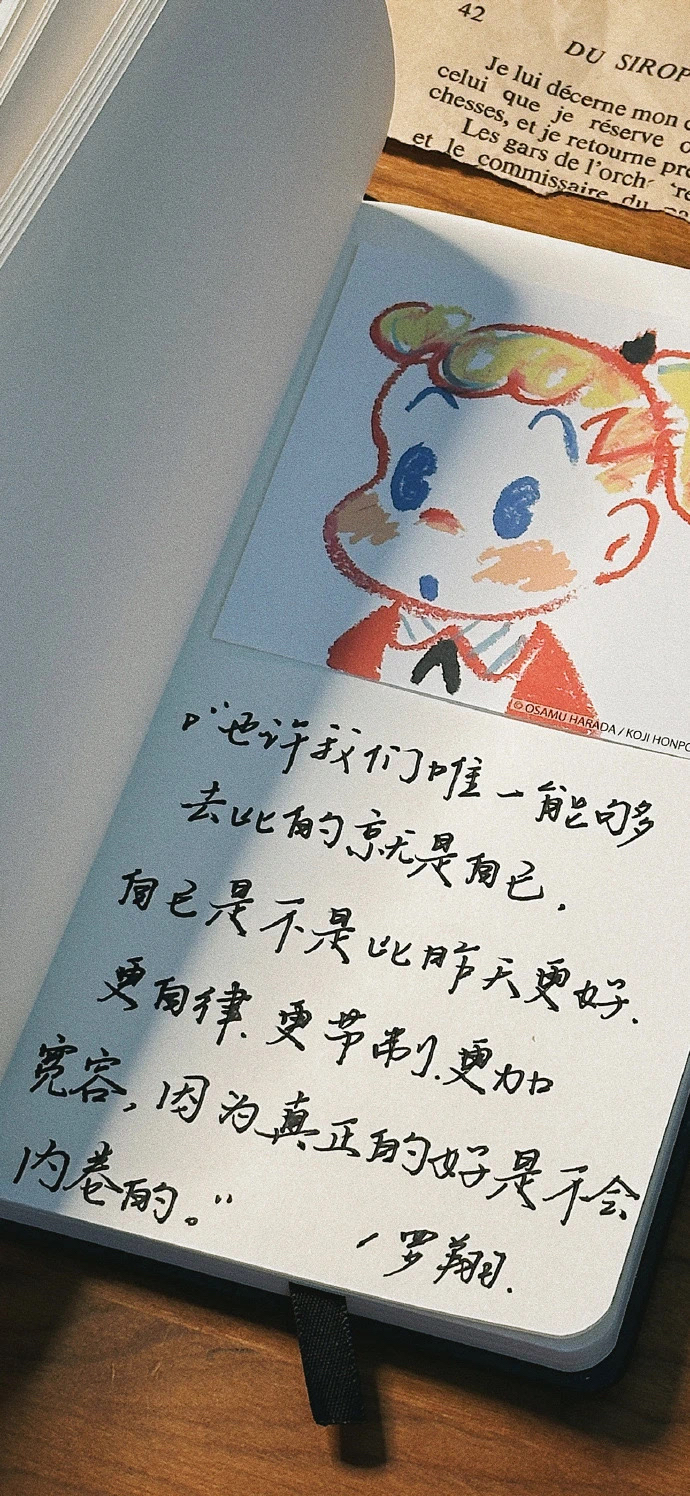 42
DU SIROP
Je lui décerne mon
celui que je réserve
chesses, et je retourne
Les gars de l'orch
et le commissaire du
© OSAMU HARADA / KOJI HONPO
“也许我们唯一能够
去比的就是自己,
自己是不是比昨天更好.
更自律.更节制.更加
宽容,因为真正的好是不会
内卷的。”
/罗翔.